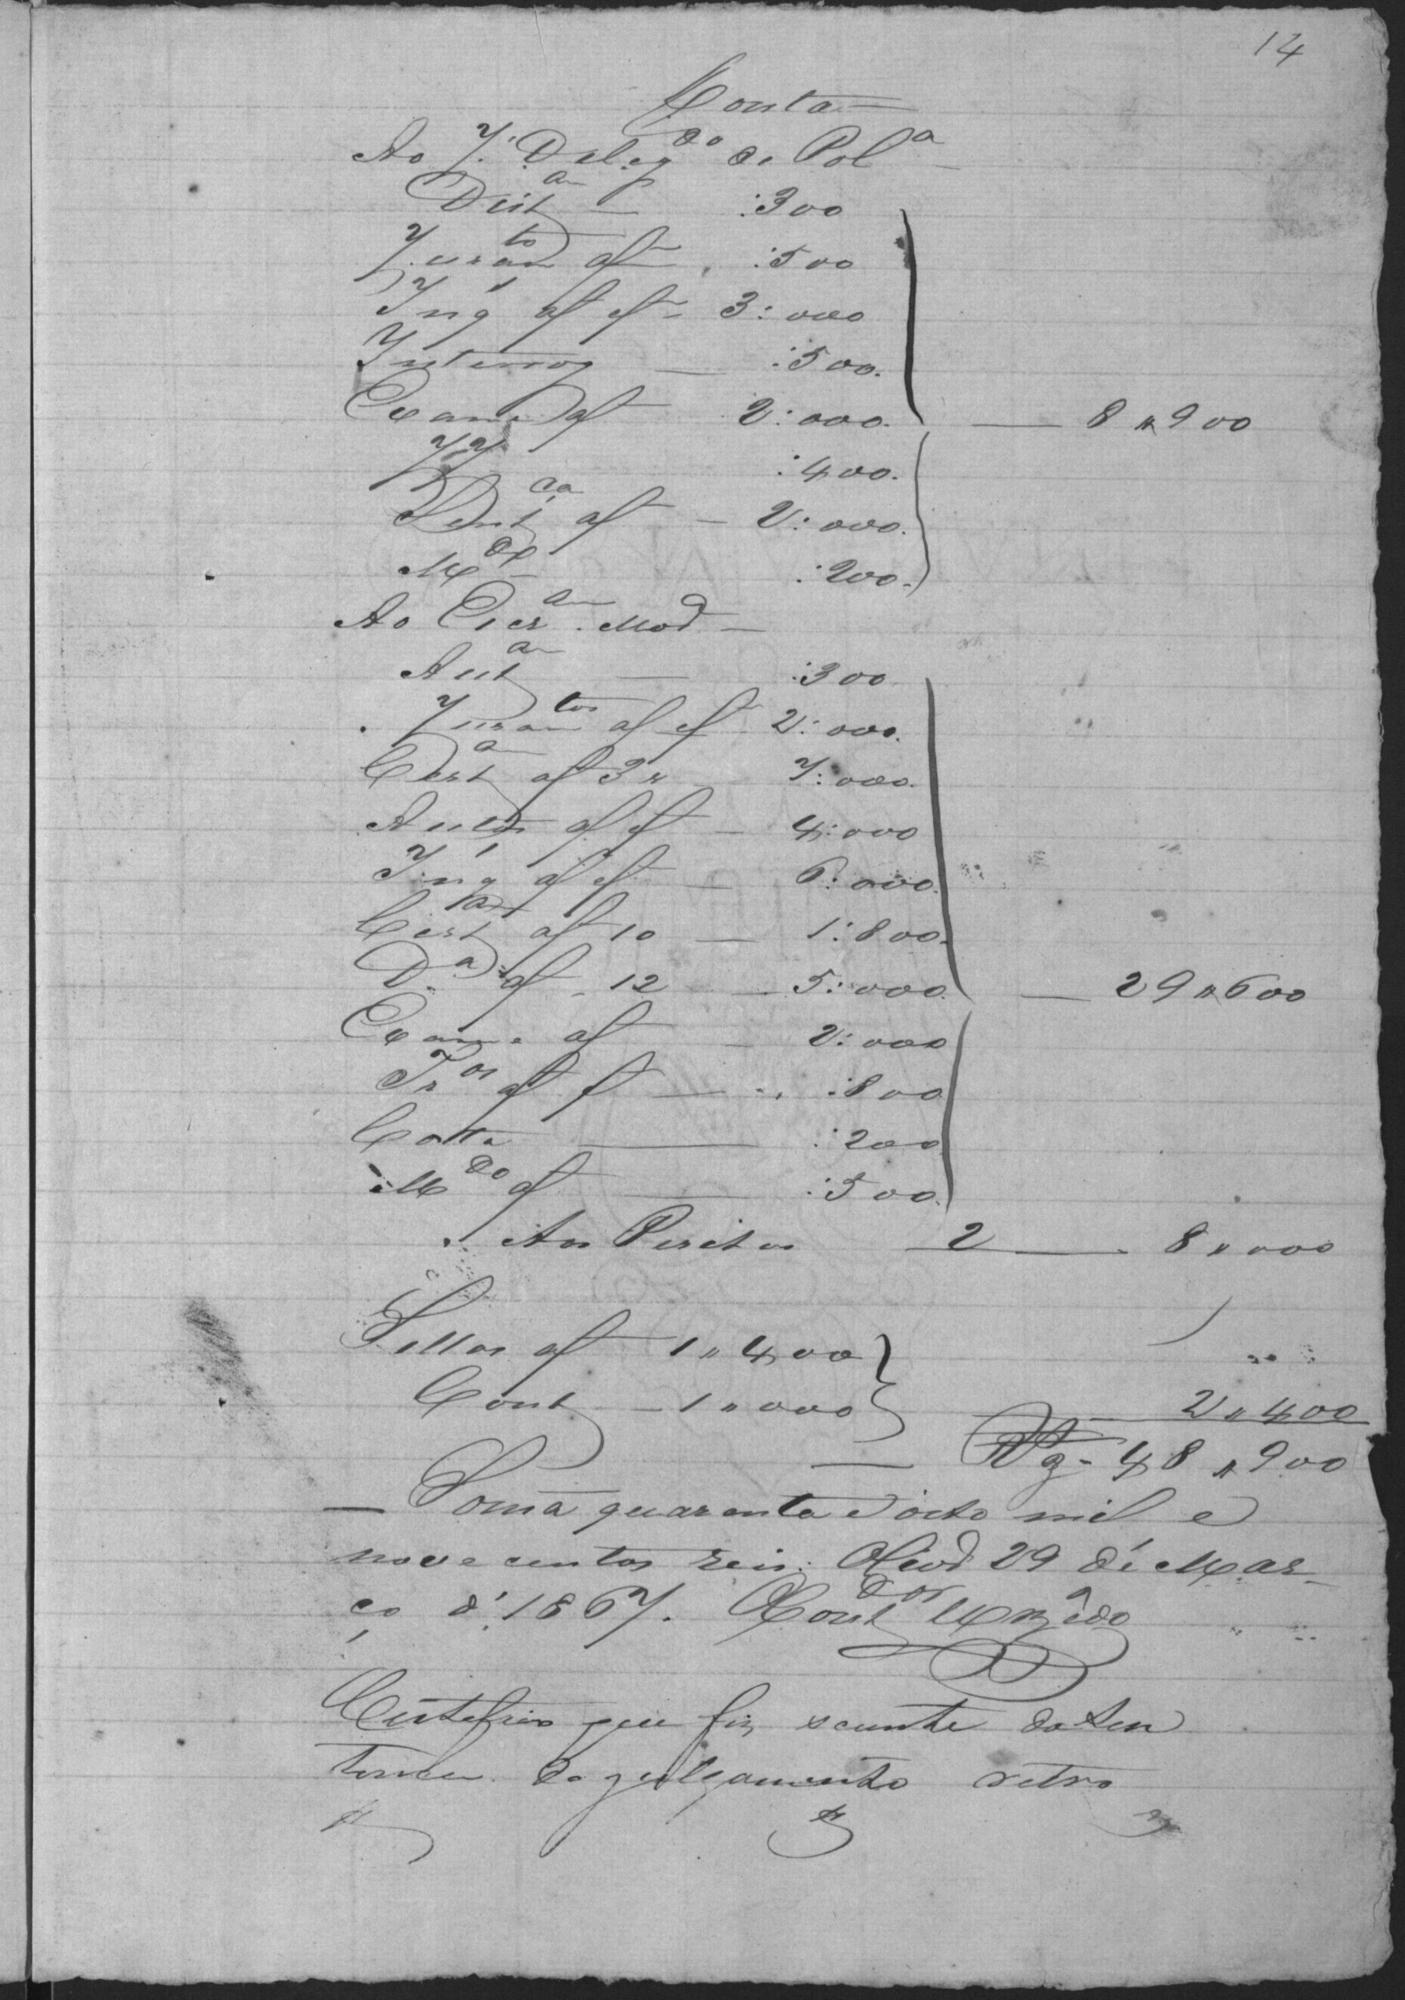 14
Conta
Ao J. Deleg.do de Pol.a
Dist.am :300
Juram.to af :500
Inq. af ef 3:000
Interrog :500.
Exame af 2:000. 8"900
:400.
Sent.ca af 2:000.
M.do :200.
Ao Escr.am Mod
Aut.am :300
Juram.tos af ef 2:000.
Cert.am af 3 7:000.
af ef 4:000
Inq. af ef 6:000.
Cert af 10 1:800.
D.a af 12 5:000 29"600
Exame af 2:000
Tr.os af f :800
Cotta :200
M.do af :500.
Aos Peritos 2 8"000
Sellos af 1"400
Cont 1"000 2"400
Rs 48"900
Soma quarenta e oito mil e
nove centos reis. 29 de Mar-
ço d'1867. O Cont.dor Azedo
Certefico que fiz sciente da Sen
tença do julgamento retro